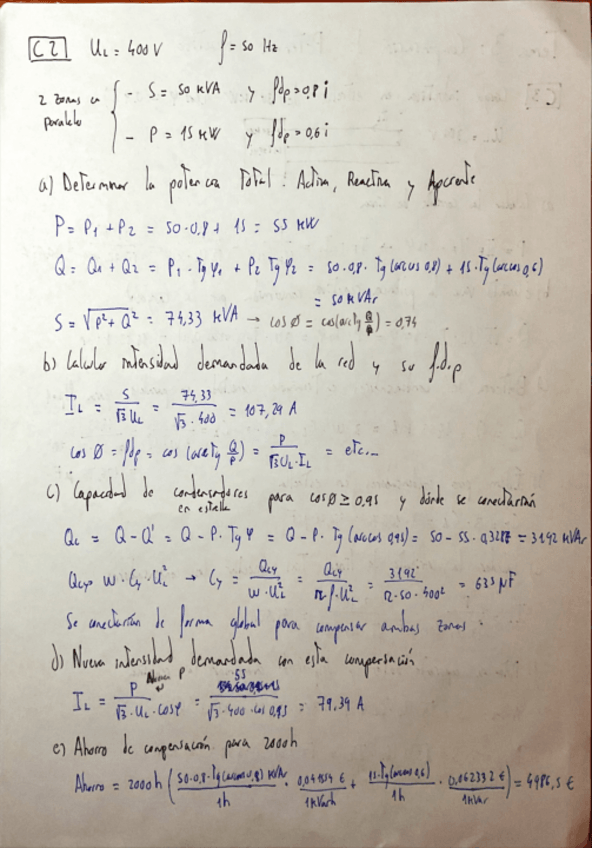 C2 U_L = 400 V f = 50 Hz
2 zonas en paralelo
- S = 50 KVA y fdp = 0,8 i
- P = 15 KW y fdp = 0,6 i
a) Determinar la potencia total. Activa, Reactiva y Aparente
P = P1 + P2 = 50·0,8 + 15 = 55 KW
Q = Q1 + Q2 = P1 · Tg φ1 + P2 Tg φ2 = 50·0,8· Tg (arcos 0,8) + 15·Tg (arcos 0,6)
= 50 KVAr
S = √P²+Q² = 74,33 KVA → cos Ø = cos(arctg Q/P) = 0,74
b) Calcular intensidad demandada de la red y su f.d.p
I_L = S/√3 U_L = 74,33/√3·400 = 107,29 A
cos Ø = fdp = cos (arctg Q/P) = P/√3 U_L·I_L = etc...
c) Capacidad de condensadores para cos Ø ≥ 0,95 y dónde se conectarían
en estrella
Qc = Q - Q' = Q - P· Tg φ = Q - P· Tg (arcos 0,95) = 50 - 55 · 0,3287 = 31,92 KVAr
Q_CY = W·C_Y·U_L² → C_Y = Q_CY/W·U_L² = Q_CY/2π f·U_L² = 3192/2π·50·400² = 635 μF
Se conectarían de forma global para compensar ambas zonas.
d) Nueva intensidad demandada con esta compensación
Nueva P
I_L = P/√3·U_L·cosφ = 55/√3·400·cos 0,95 = 79,39 A
e) Ahorro de compensación para 2000h
Ahorro = 2000h (50·0,8·Tg(arcos 0,8) KVAr/1h · 0,041554 €/1KVarh + 15·Tg(arcos 0,6)/1h · 0,062332 €/1KVar) = 4986,5 €